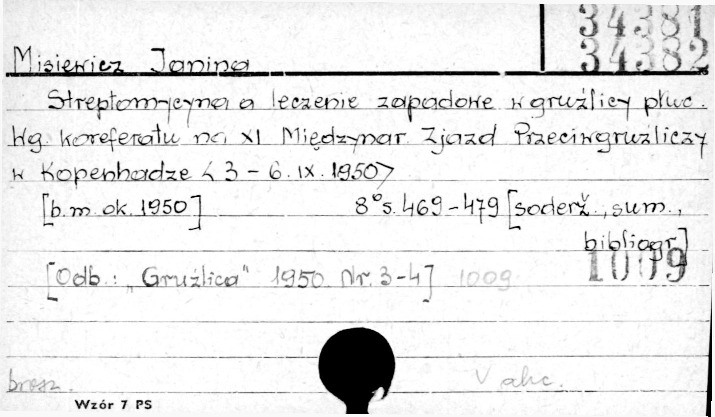 34381
34382
Misiewicz Janina
Streptomycyna a leczenie zapadowe w gruźlicy płuc.
Wg. koreferatu na XI Międzynar. Zjazd Przeciwgruźliczy
w Kopenhadze < 3 - 6. IX. 1950>
[b.m. ok. 1950] 8° s. 469-479 [soderž., sum.,
bibliogr.]
[Odb.: „Gruźlica" 1950 Nr. 3-4] 1009 1009
brosz. V akc.
Wzór 7 PS